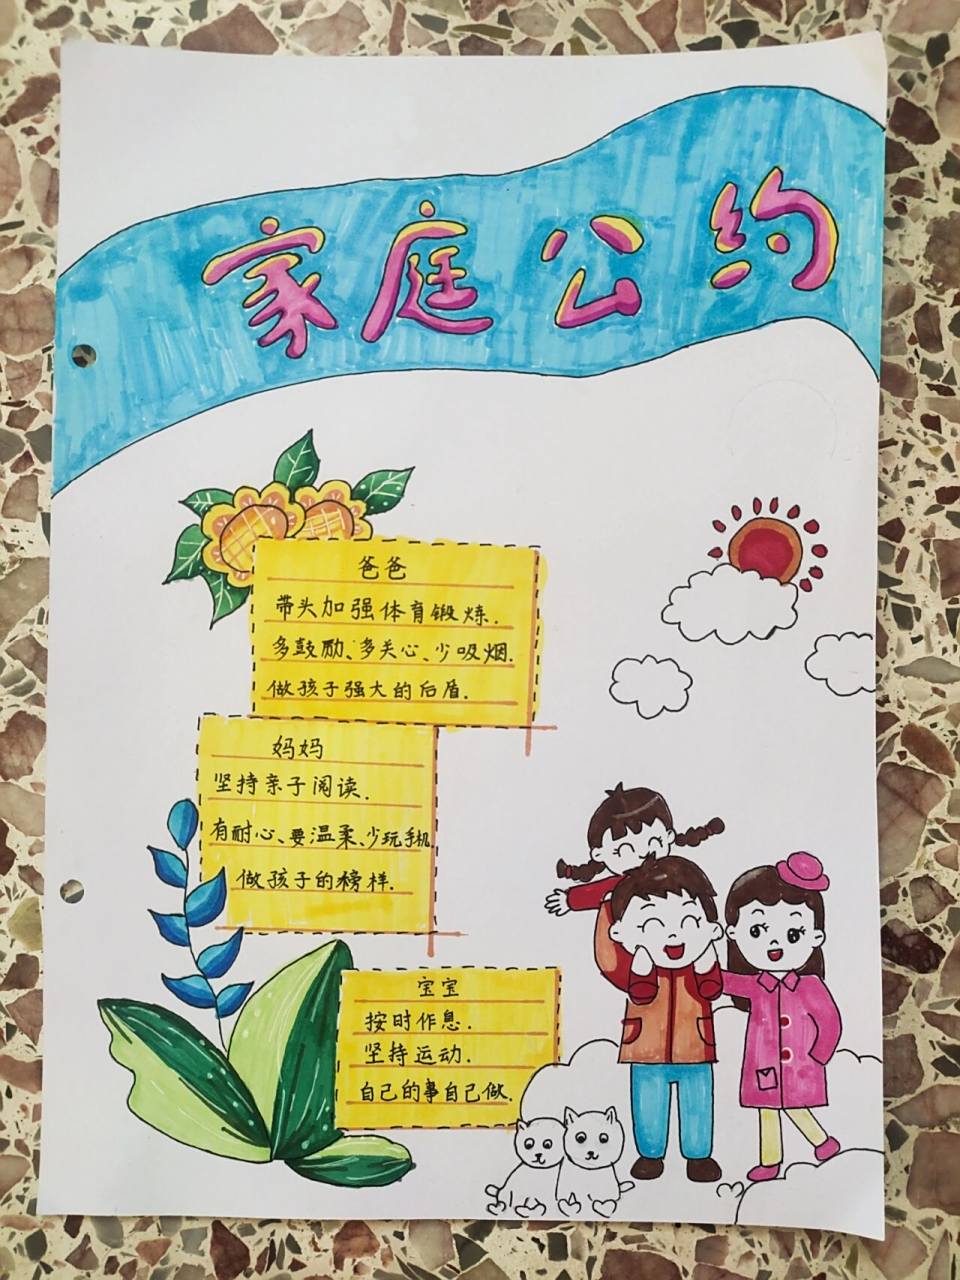 家庭公约
爸爸
带头加强体育锻炼.
多鼓励、多关心、少吸烟.
做孩子强大的后盾.
妈妈
坚持亲子阅读.
有耐心、要温柔、少玩手机
做孩子的榜样.
宝宝
按时作息.
坚持运动.
自己的事自己做.